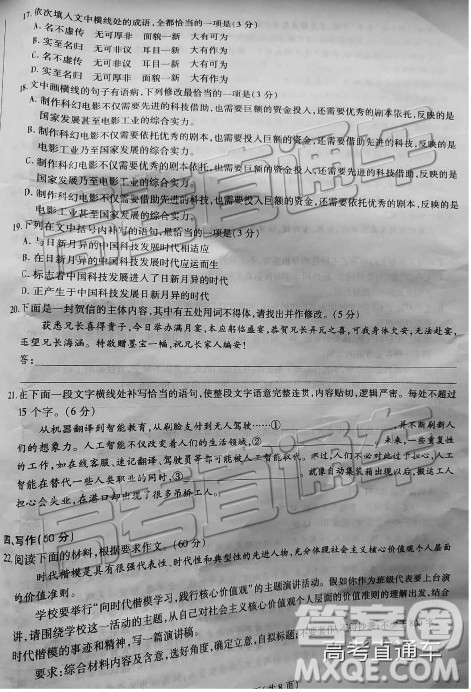 17.依次填入文中横线处的成语,全都恰当的一项是(3 分)
A. 名不虚传 无可厚非 面貌一新 大有可为
B. 实至名归 无可非议 耳目一新 大有作为
C. 名不虚传 无可非议 面貌一新 大有作为
D. 实至名归 无可厚非 耳目一新 大有可为
18.文中画横线的句子有语病,下列修改最恰当的一项是(3 分)
A. 制作科幻电影不仅需要先进的科技借助,也需要巨额的资金投入,还需要优秀的剧本依托,反映的是
国家发展甚至电影工业的综合实力。
B. 制作科幻电影不仅需要优秀的剧本依托,也需要投入巨额的资金,还需要借助先进的科技,反映的是
电影工业乃至国家发展的综合实力。
C. 制作科幻电影不仅需要优秀的剧本,也需要投入巨额的资金,还需要借助先进的科技,反映的是
国家发展乃至电影工业的综合实力。
D. 制作科幻电影不仅需要借助先进的科技,也需要投入巨额的资金,还需要依托优秀的剧本,反映的是
电影工业甚至国家发展的综合实力。
19.下列在文中括号内补写的语句,最恰当的一项是(3 分)
A. 与日新月异的中国科技发展时代相适应
B. 在日新月异的中国科技发展时代应运而生
C. 标志着中国科技发展进入了日新月异的时代
D. 正产生于中国科技发展日新月异的时代
20.下面是一封贺信的主体内容,其中有五处用词不得体,请找出并作修改。(5 分)
获悉兄长喜得贵子,今日举办满月宴,本应躬临盛宴,恭贺兄长弄瓦之喜,可我身体欠安,无法赴宴,
还望兄长海涵。特敬赠墨宝一幅,祝兄长家人编安!
答:
21.在下面一段文字横线处补写恰当的语句,使整段文字语意完整连贯,内容贴切,逻辑严密。每处不超过
15 个字。(6 分)
从机器翻译到智能教育,从刷脸支付到无人驾驶……①,并不断刷新人
们的想象力。人工智能不仅改变着人们的生活领域,②。未来,一些重复性
的工作,如在线客服、速记翻译、驾驶员等都可能被人工智能取代。我们大可不必对此过于担心,人工
智能在替代一些人类职业的同时,③。就像自动集装箱出现以后,搬运工人
担心会失业,在港口却出现了很多吊桥工人。
四、写作(60 分)
22.阅读下面的材料,根据要求作文。(60 分)
时代楷模是具有很强代表性、时代性和典型性的先进人物,充分体现社会主义核心价值观个人层面
的价值准则。
学校要举行“向时代楷模学习,践行核心价值观”的主题演讲活动。假如你作为班级代表要上台演
讲,请围绕学校这一活动的主题,从自己对社会主义核心价值观个人层面的价值准则的理解出发,结合
时代楷模的事迹和精神,写一篇演讲稿。
要求:综合材料内容及含意,选好角度,确定立意,自拟标题;
高考直通车
答案圈
高考直通车
MXQE.COM